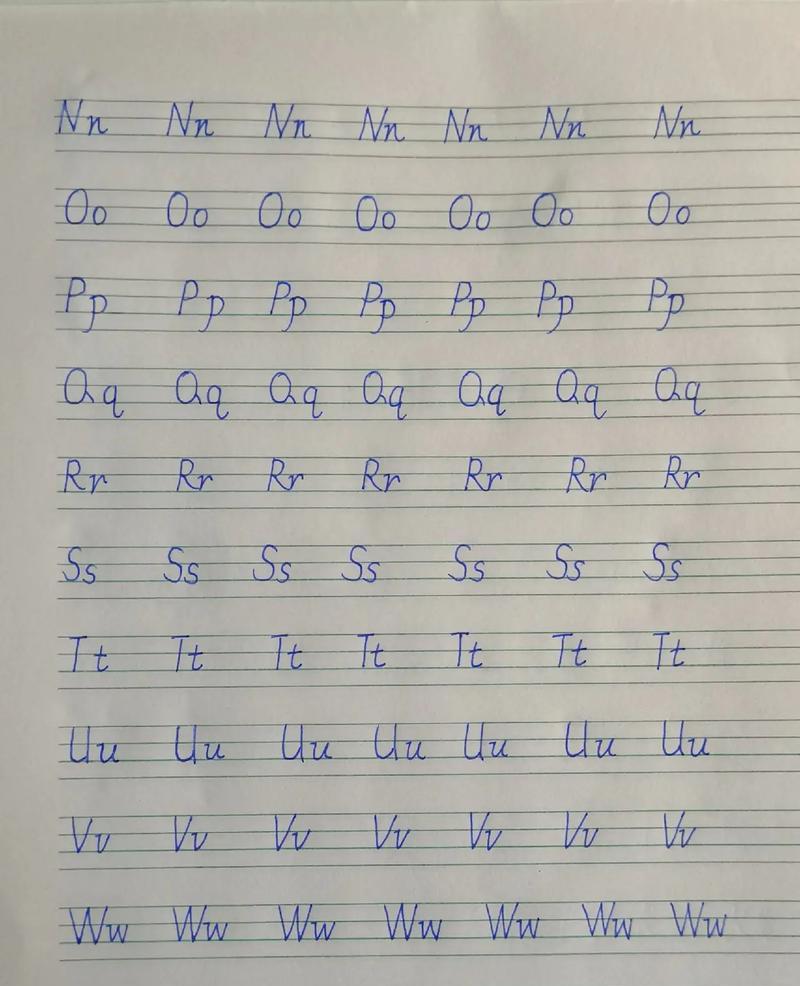 Nn Nn Nn Nn Nn Nn Nn
Oo Oo Oo Oo Oo Oo Oo
Pp Pp Pp Pp Pp Pp Pp
Qq Qq Qq Qq Qq Qq Qq
Rr Rr Rr Rr Rr Rr Rr
Ss Ss Ss Ss Ss Ss Ss
Tt Tt Tt Tt Tt Tt Tt
Uu Uu Uu Uu Uu Uu Uu
Vv Vv Vv Vv Vv Vv Vv
Ww Ww Ww Ww Ww Ww Ww